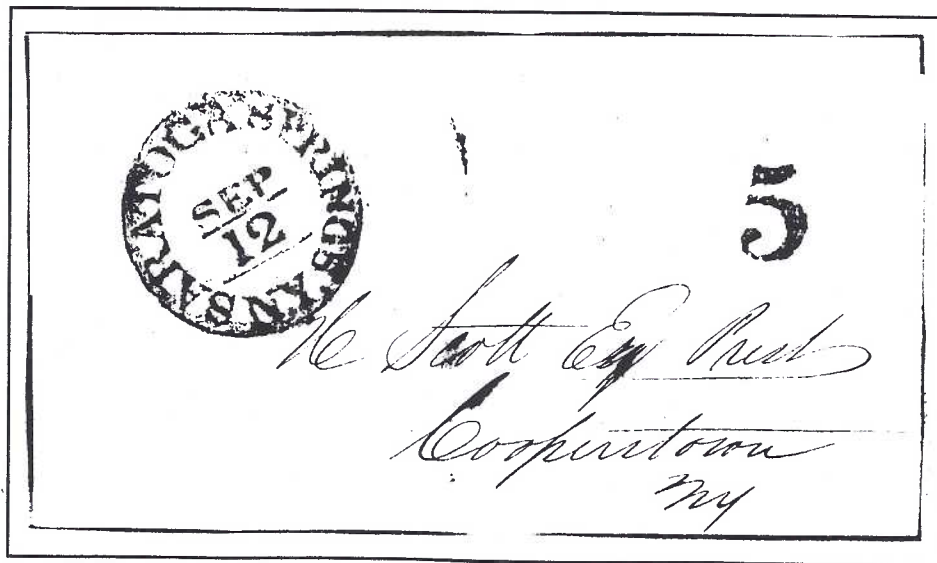 SARATOGA SPRINGS N.Y.
SEP
12
5
H Scott Esq Prest
Cooperstown
NY